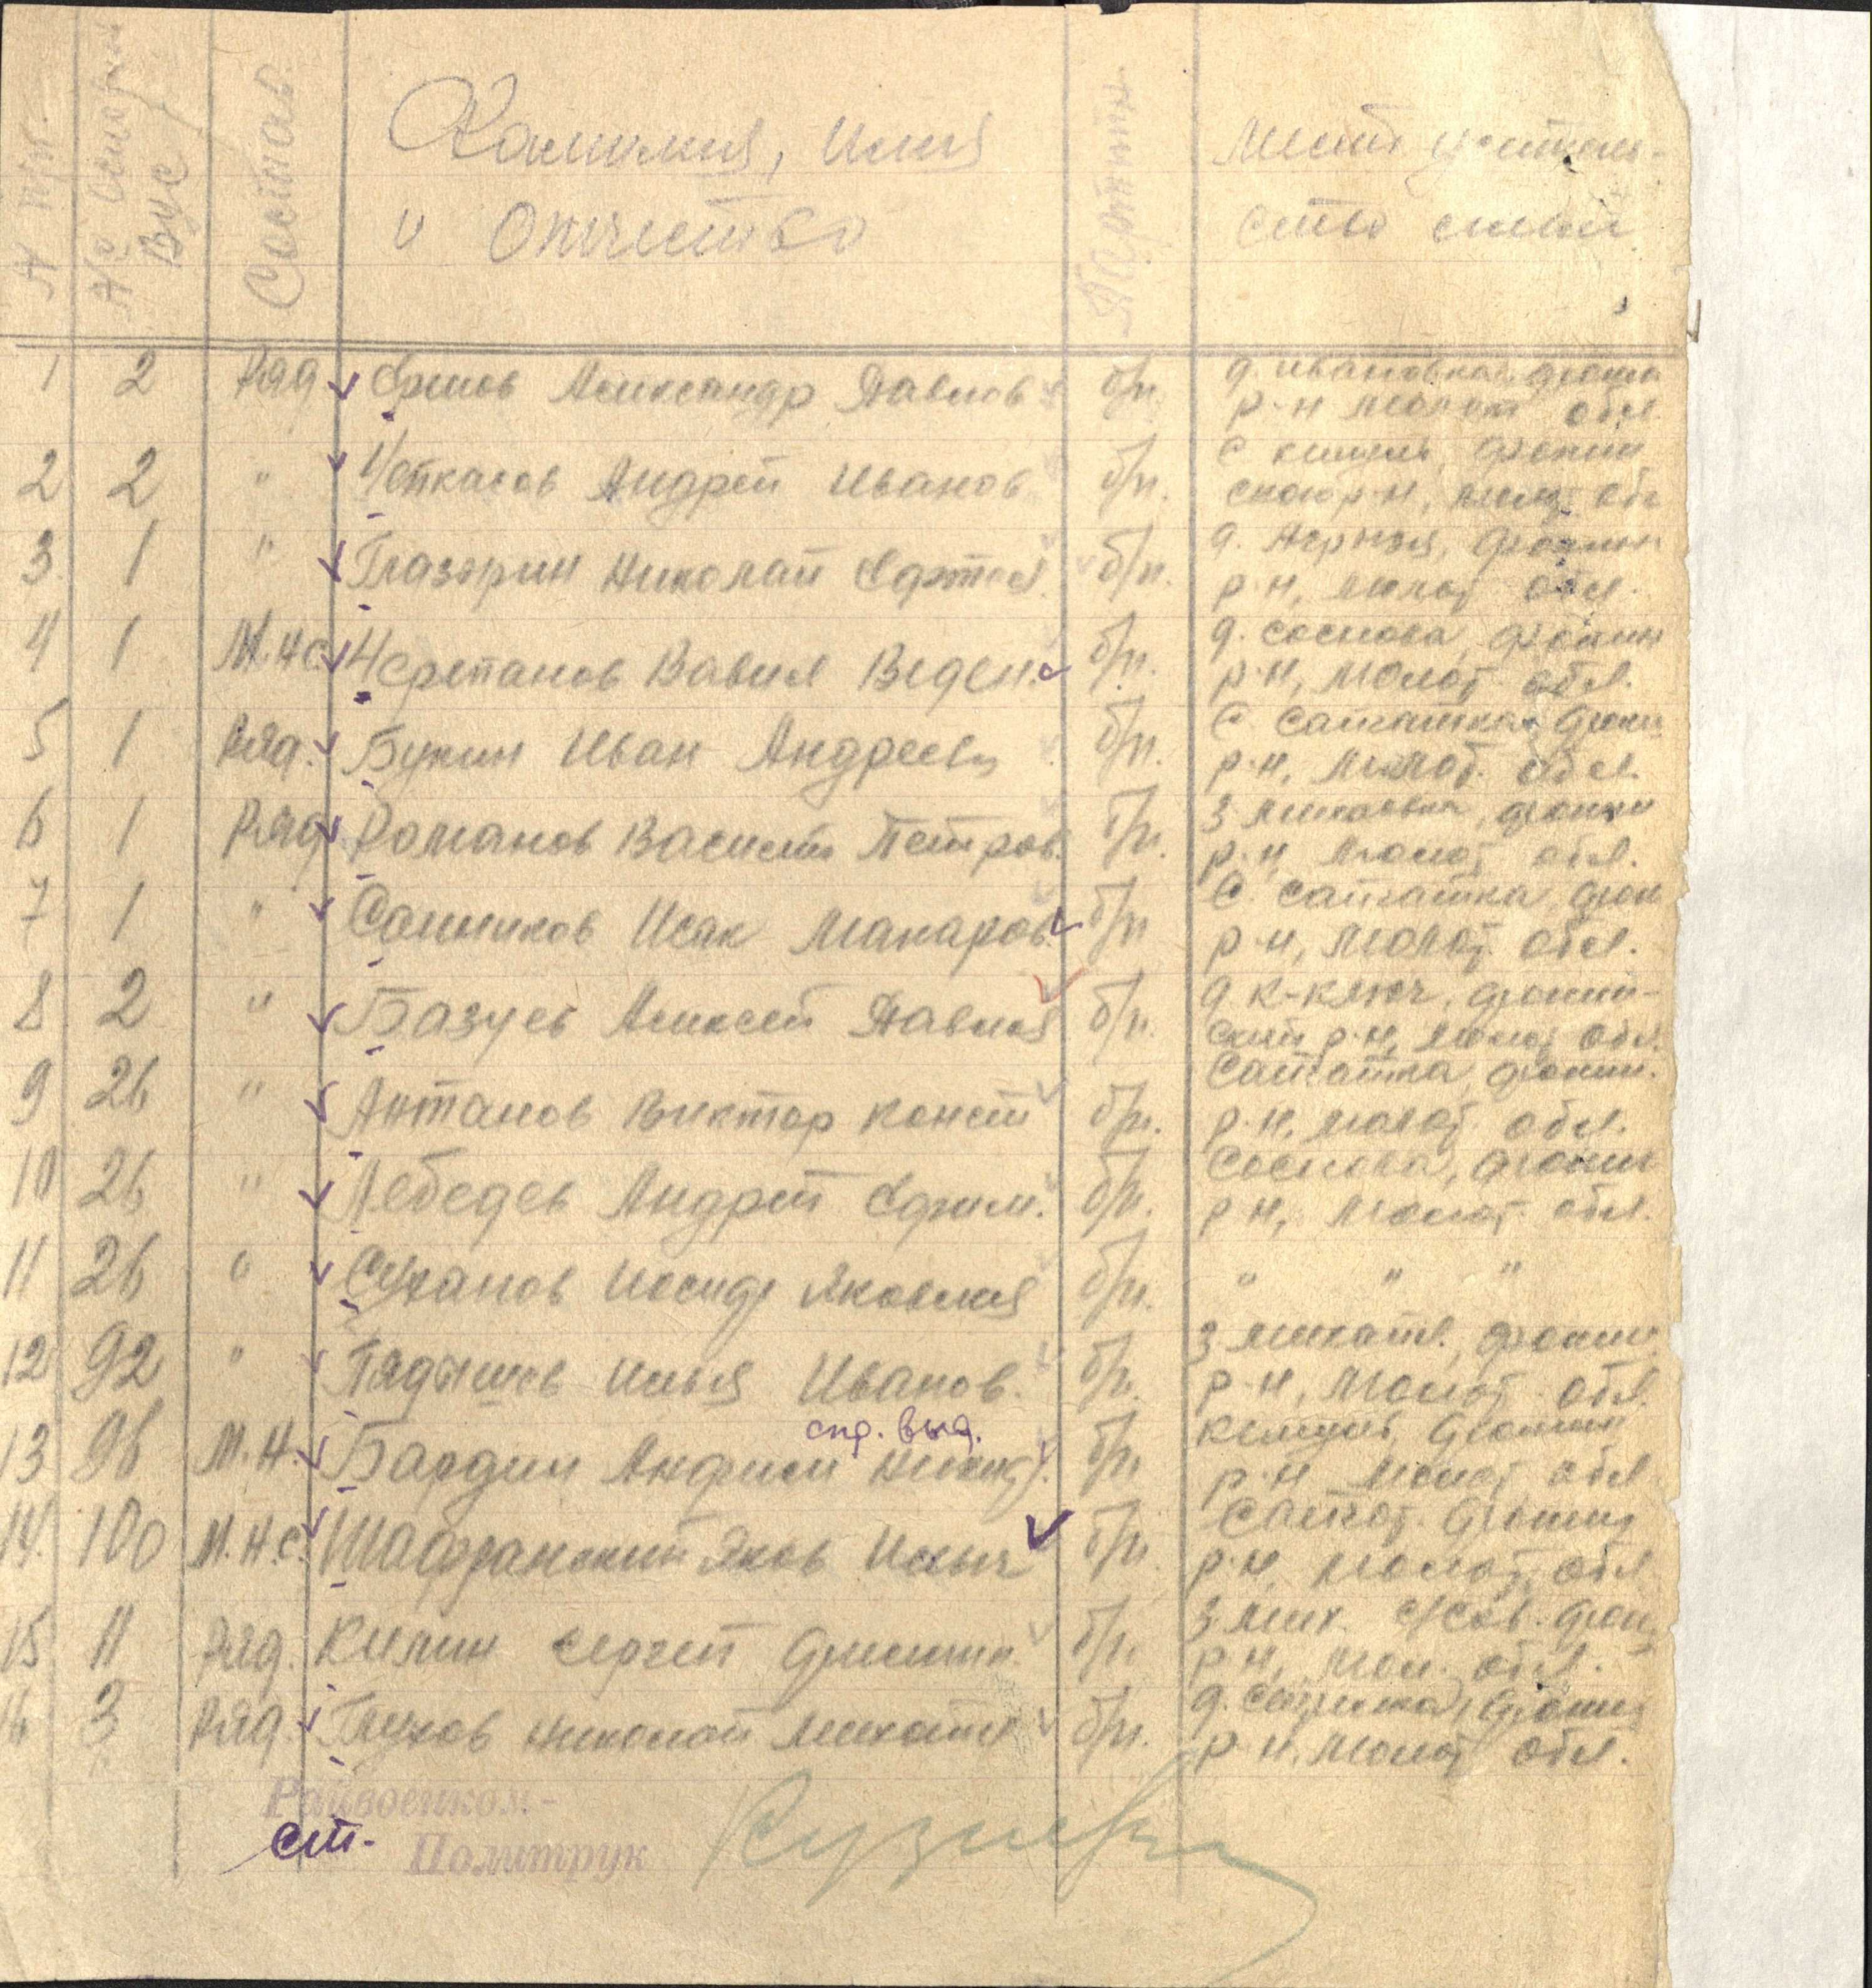 N п/п.
№ основн Вус
Состав.
Фамилия, Имя
и Отчество
Партийн
Место
семьи
1 2 Ряд Ершов Александр Павлов б/п. д. Ивановка
р-н Молот обл.
2 2 " Чепкасов Андрей Иванов б/п. с.
ского р-н, Молот обл
3 1 " Глазырин Николай б/п. д.
р-н, Молот обл.
4 1 М.Нс Черепанов Вавил Веден. б/п. д. Соснова, Фокин
р-н, Молот обл.
5 1 Ряд. Букин Иван Андреевич б/п. с. Сайгатка Фокин
р-н, Молот. обл.
6 1 Ряд Романов Василий Петров. б/п. З Михайловка, Фокин
р-н, Молот обл.
7 1 " Санников Исак Макаров. б/п с. Сайгатка, Фок
р-н, Молот. обл.
8 2 " Базуев Алексей Павлов б/п. д. К-Ключ, Фокин-
ский р-н, Молот обл.
9 26 " Антанов Виктор Конст б/п. Сайгатка, Фокин.
р-н, Молот. обл.
10 26 " Лебедев Андрей Ефим. б/п. Соснова, Фокин
р-н, Молот обл.
11 26 " Суханов Иосиф Яковлев б/п. " " "
12 92 " Пядышев Илья Иванов. б/п. З Михайл., Фокин.
р-н, Молот обл.
спр. выд.
13 98 М.Н. Бардин б/п Фокин
р-н Молот обл
14. 100 М.Н.С. Шафранский Яков Ильич б/п Сайгат. Фокинс
р-н, Молот обл
15 11 Ряд. Килин Сергей б/п З Мих. с/сов. Фокин
р-н, Мол. обл.
16 3 Ряд. Глухов Николай Михайл б/п. д. Фокинс
р-н, Молот обл.
Райвоенком-
ст. Политрук